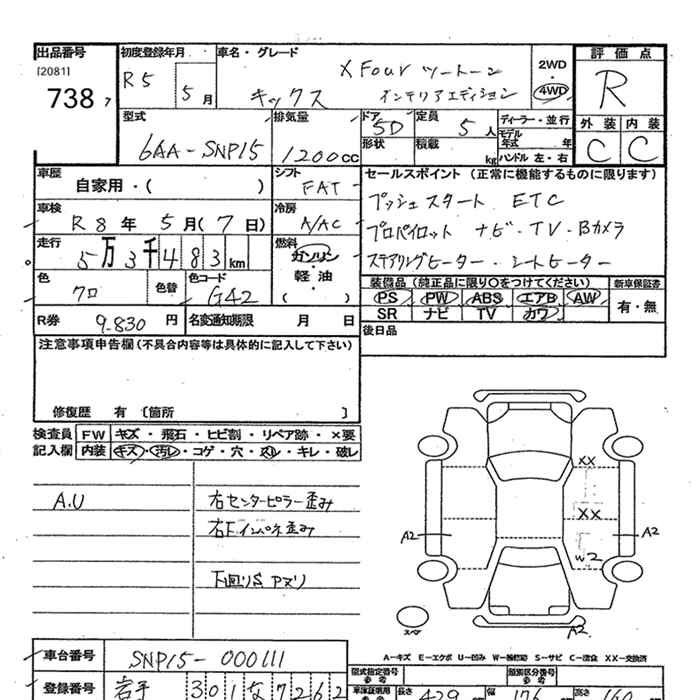 出品番号
[2081]
738 7
初度登録年月
R5 5 月
車名・グレード
X Four ツートーン
キックス インテリアエディション
2WD
・
4WD
評価点
R
型式
6AA-SNP15
排気量
1200cc
ドア
5D
形状
定員
5人
積載
kg
ディーラー・並行
モデル
年式 年
ハンドル 左・右
外装 内装
C C
車歴
自家用・( )
シフト
FAT
セールスポイント (正常に機能するものに限ります)
プッシュスタート ETC
プロパイロット ナビ・TV・Bカメラ
ステアリングヒーター・シートヒーター
車検
R8年 5月(7日)
冷房
A/AC
走行
5万3千483km
燃料
ガソリン
・
軽油
・
( )
色
クロ
色替
色コード
G42
装備品 (純正品に限り○をつけてください)
PS PW ABS エアB AW
SR ナビ TV カワ
新車保証書
有・無
R券 9.830 円
名変通知期限 月 日
後日品
注意事項申告欄 (不具合内容等は具体的に記入して下さい)
修復歴 有 〔箇所 〕
検査員
記入欄
FW キズ・飛石・ヒビ割・リペア跡・×要
内装 キズ・汚レ・コゲ・穴・スレ・キレ・破レ
A.U
右センターピラー歪み
右Fインパネ歪み
下回りS Pズリ
XX
XX
A2
A2
W2
スペア
A2
A…キズ E…エクボ U…凹み W…補修跡 S…サビ C…腐食 XX…交換済
車台番号 SNP15-000111
登録番号 岩手 301 な 7262
型式指定番号
参考
類別区分番号
参考
車庫証明用
参考
長さ 429
幅 176
高さ 164